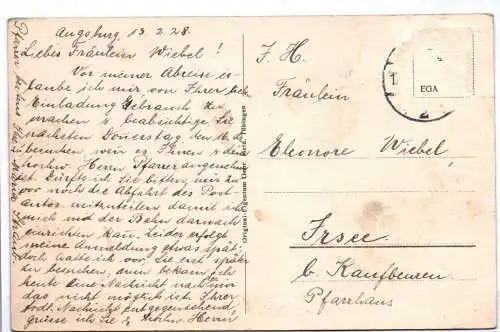 Augsburg 13.2.28.
Liebes Fräulein Wiebel!
Vor meiner Abreise er-
laube ich mir von Ihrer lieb.
Einladung Gebrauch zu
machen & beabsichtige Sie
nächsten Donerstag den 16. ds
besuchen, wen es Ihnen & dem
hochw. Hern Pfarrer angenehm
ist. Dürfte ich Sie bitten, mir zu
vor noch die Abfahrt des Post-
autos mitzuteilen damit ich
mich mit der Bahn darnach
einrichten kan. Leider erfolgt
meine Anmeldung etwas spät,
doch hatte ich vor Sie erst später
zu besuchen, nun bekam ich
heute Eine Nachricht nach
das nicht möglich ist. Ihrer
Nachricht entgegensehend
grüsse ich Sie & hochw. Hern
Pfarrer
Original-Eigentum
EOA
S. H.
Fräulein
Eleonore Wiebel
Irsee
b. Kaufbeuren
Pfarrhaus